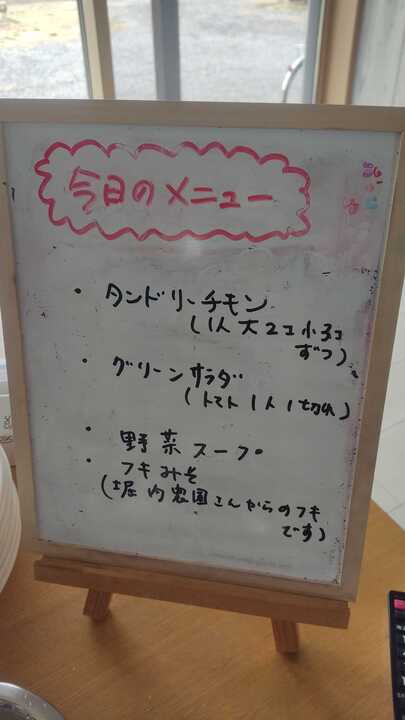 今日のメニュー
・タンドリーチモン
(1人大2コ小3コ
ずつ)
・グリーンサラダ
(トマト1人1切れ)
・野菜スープ
・フキみそ
(堀内農園さんからのフキ
です)